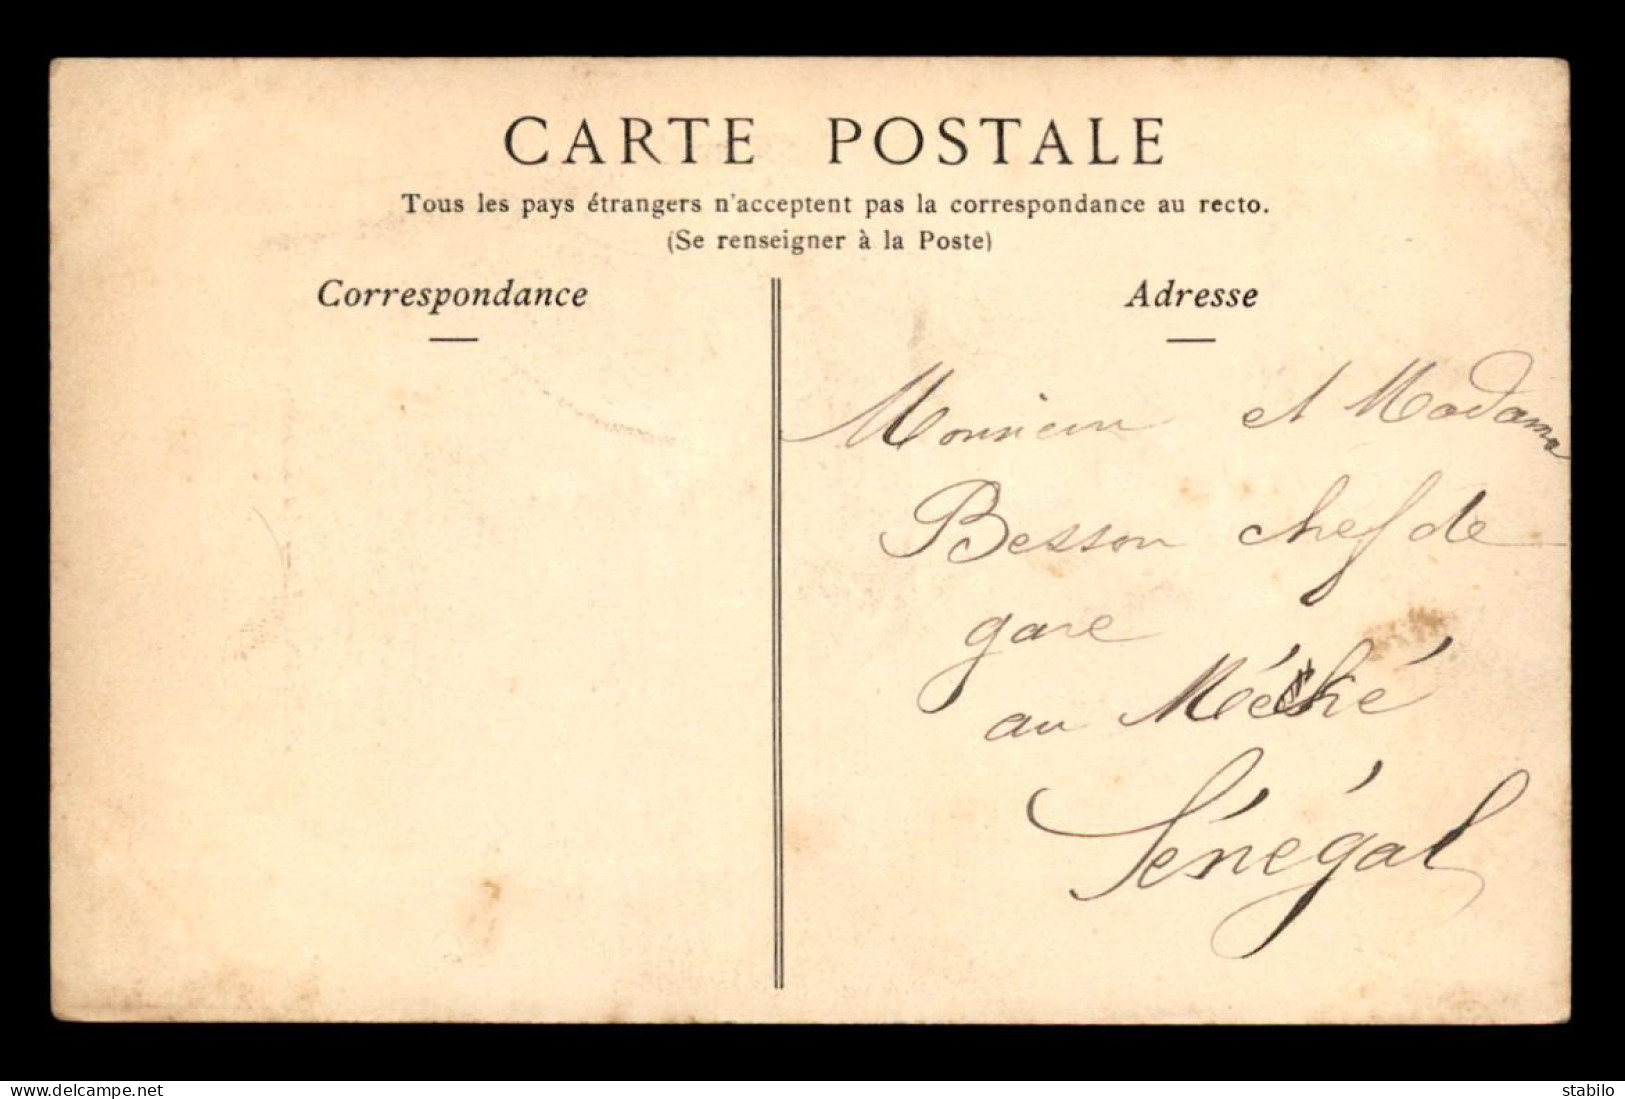 CARTE POSTALE
Tous les pays étrangers n'acceptent pas la correspondance au recto.
(Se renseigner à la Poste)
Correspondance
Adresse
Monsieur et Madame
Besson chef de
gare
au Méké
Sénégal
www.delcampe.net
stabilo